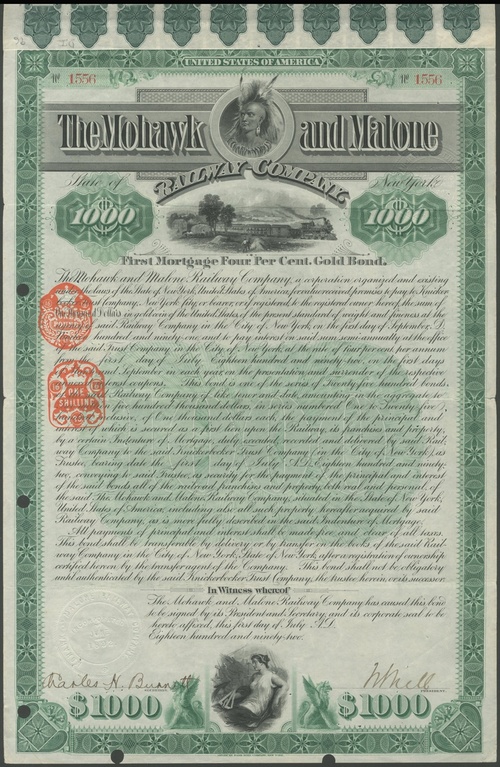 UNITED STATES OF AMERICA
Nº 1556 Nº 1556
The Mohawk and Malone
RAILWAY COMPANY.
State of New York.
1000 1000
First Mortgage Four Per Cent. Gold Bond.
The Mohawk and Malone Railway Company, a corporation organized and existing
under the laws of the State of New York, United States of America, for value received, promises to pay to Knicker
Trust company, New York city or bearer, or if registered, to the registered owner hereof the sum of
One thousand Dollars in gold coin of the United States, of the present standard of weight and fineness at the
of said Railway Company in the City of New York, on the first day of September, A.D.
hundred and ninety-one and to pay interest on said sum semi-annually at the office
said Trust Company in the City of New York, at the rate of four per cent per annum
from the first day of July Eighteen hundred and ninety-two, on the first days
of and September in each year, on the presentation and surrender of the respective
interest coupons. This bond is one of the series of Twenty five hundred bonds,
Railway Company of like tenor and date, amounting in the aggregate
five hundred thousand dollars, in series numbered One to Twenty five
inclusive, of One thousand dollars each, the payment of the principal and
interest of which is secured as a first lien upon the Railway, its franchises and property,
by a certain Indenture of Mortgage, duly executed, recorded and delivered by said Rail
way Company to the said Knickerbocker Trust Company (in the City of New York), as
Trustee, bearing date the first day of July A.D. Eighteen hundred and ninety-
two, conveying to said Trustee, as security for the payment of the principal and interest
of the said bonds all of the railway franchises and property, both real and personal, of
the said The Mohawk and Malone Railway Company, situated in the State of New York,
United States of America, including also all such property hereafter acquired by said
Railway Company, as is more fully described in the said Indenture of Mortgage.
All payments of principal and interest shall be made free and clear of all taxes.
This bond shall be transferable by delivery or by transfer on the books of the said Rail
way Company in the City of New York, State of New York, after a registration of ownership
certified hereon by the transfer agent of the Company. This bond shall not be obligatory
until authenticated by the said Knickerbocker Trust Company, the trustee herein, or its successor.
In Witness whereof
The Mohawk and Malone Railway Company has caused this bond
to be signed by its President and Secretary, and its corporate seal to be
hereto affixed, this first day of July A.D.
Eighteen hundred and ninety-two.
ONE
SHILLING
Charles H. Burnett
SECRETARY. PRESIDENT.
$1000 $1000